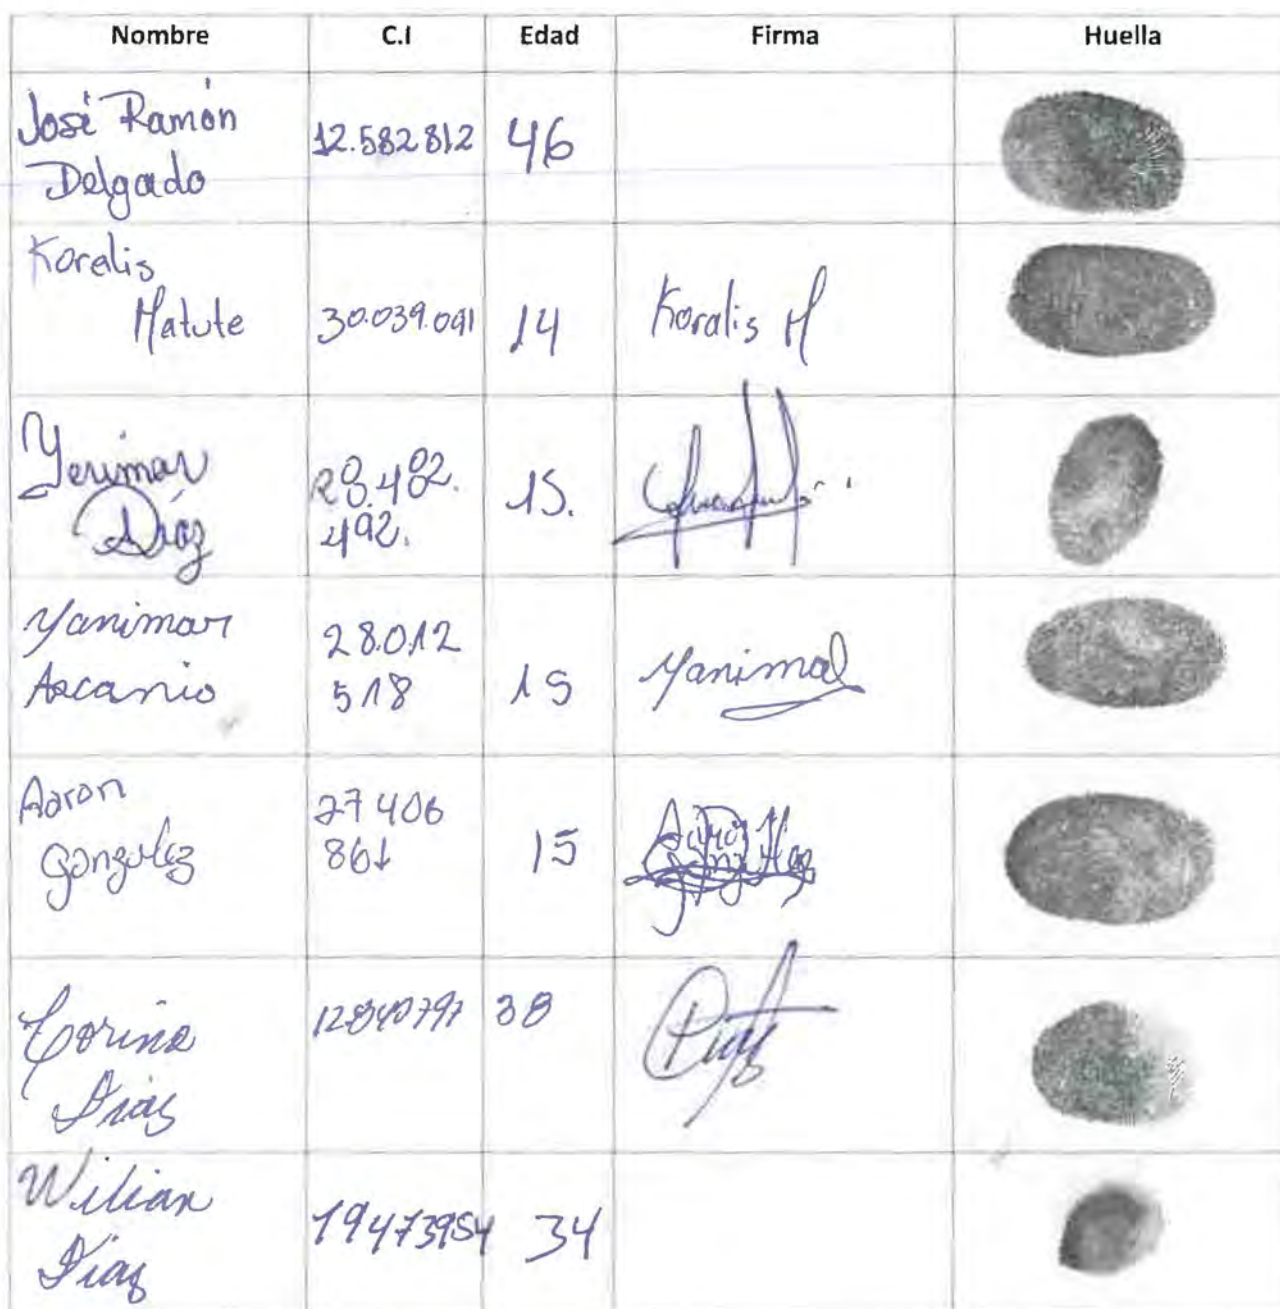 Nombre C.I Edad Firma Huella
José Ramón
Delgado
12.582812 46
Koralis
Matute
30.039.091 14 Koralis M
Yerimar
Díaz
28.482.
492.
15.
Yanimar
Ascanio
28.012
518
15
Aaron
gonzalez
27 406
861
15
Corina
Diaz
38
Wilian
Diaz
19473954 34